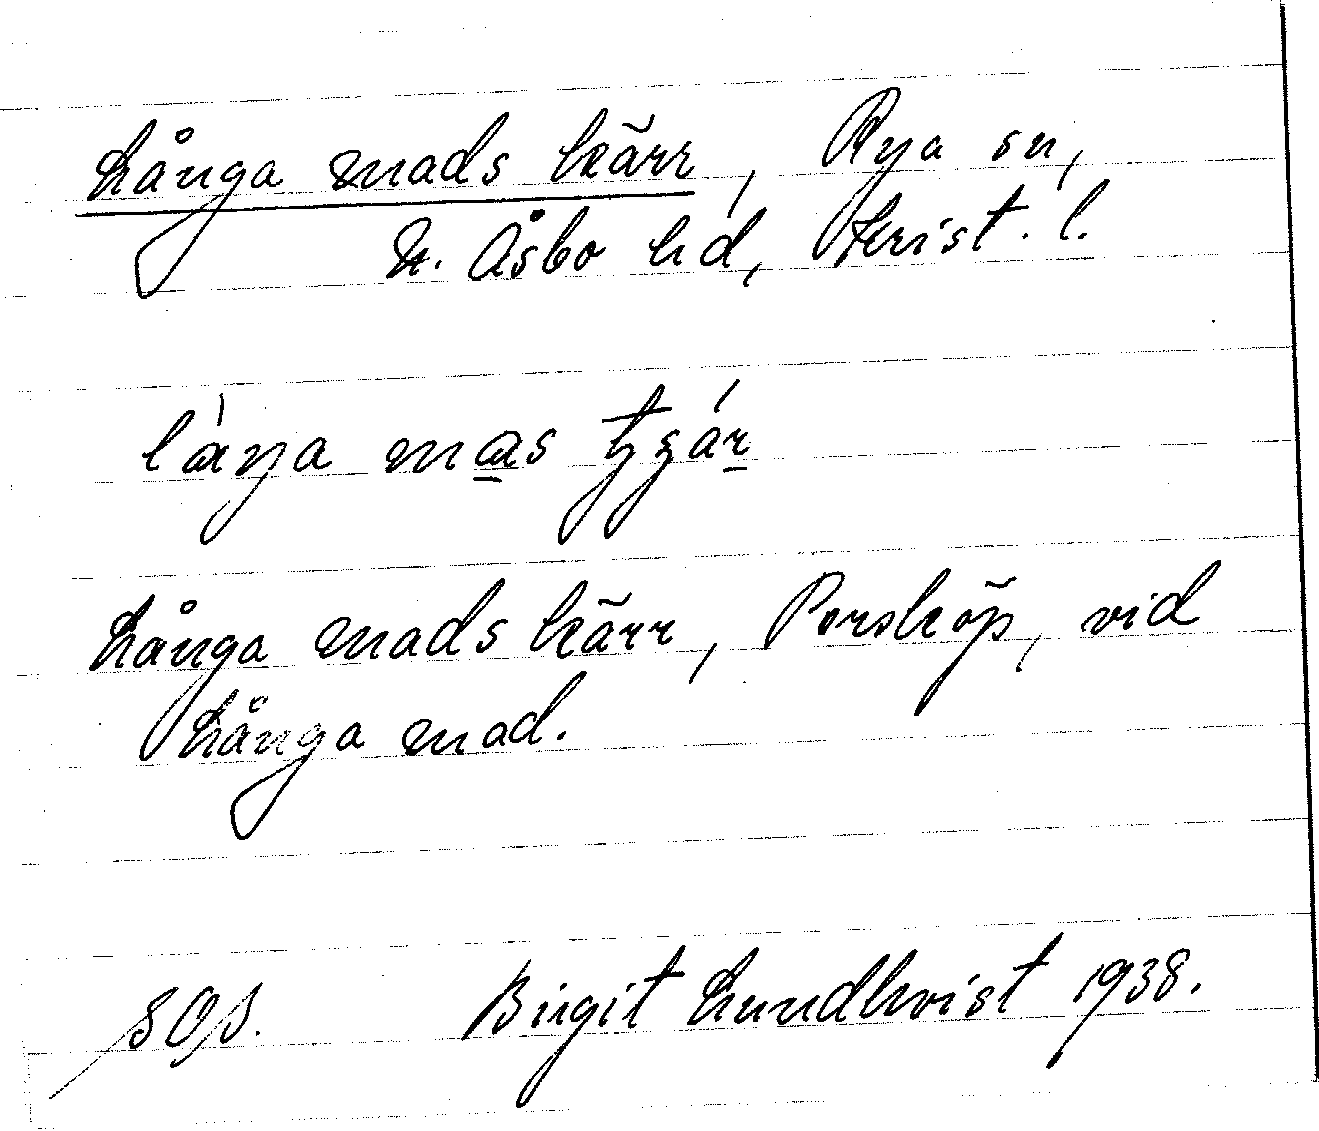 Långa mads kärr, Rya sn,
N. Åsbo hd, Krist. l.
lánga mas tʒár
Långa mads kärr, Persköp, vid
Långa mad.
Birgit Lundkvist 1938.